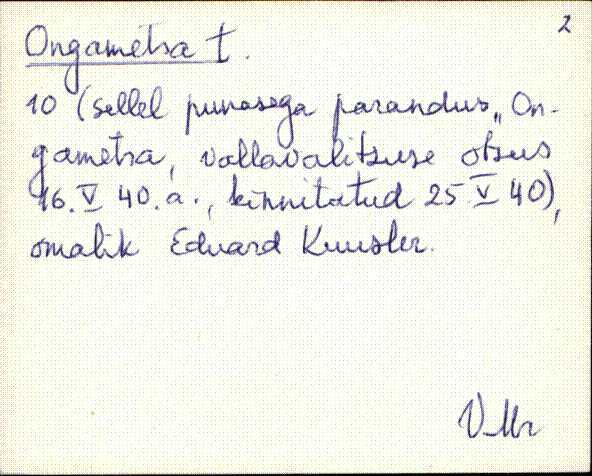 2
Ongametsa t.
10 (sellel punasega parandus „On-
gametsa, vallavalitsuse otsus
16. V 40. a., kinnitatud 25 V 40),
omanik Eduard Kuusler.